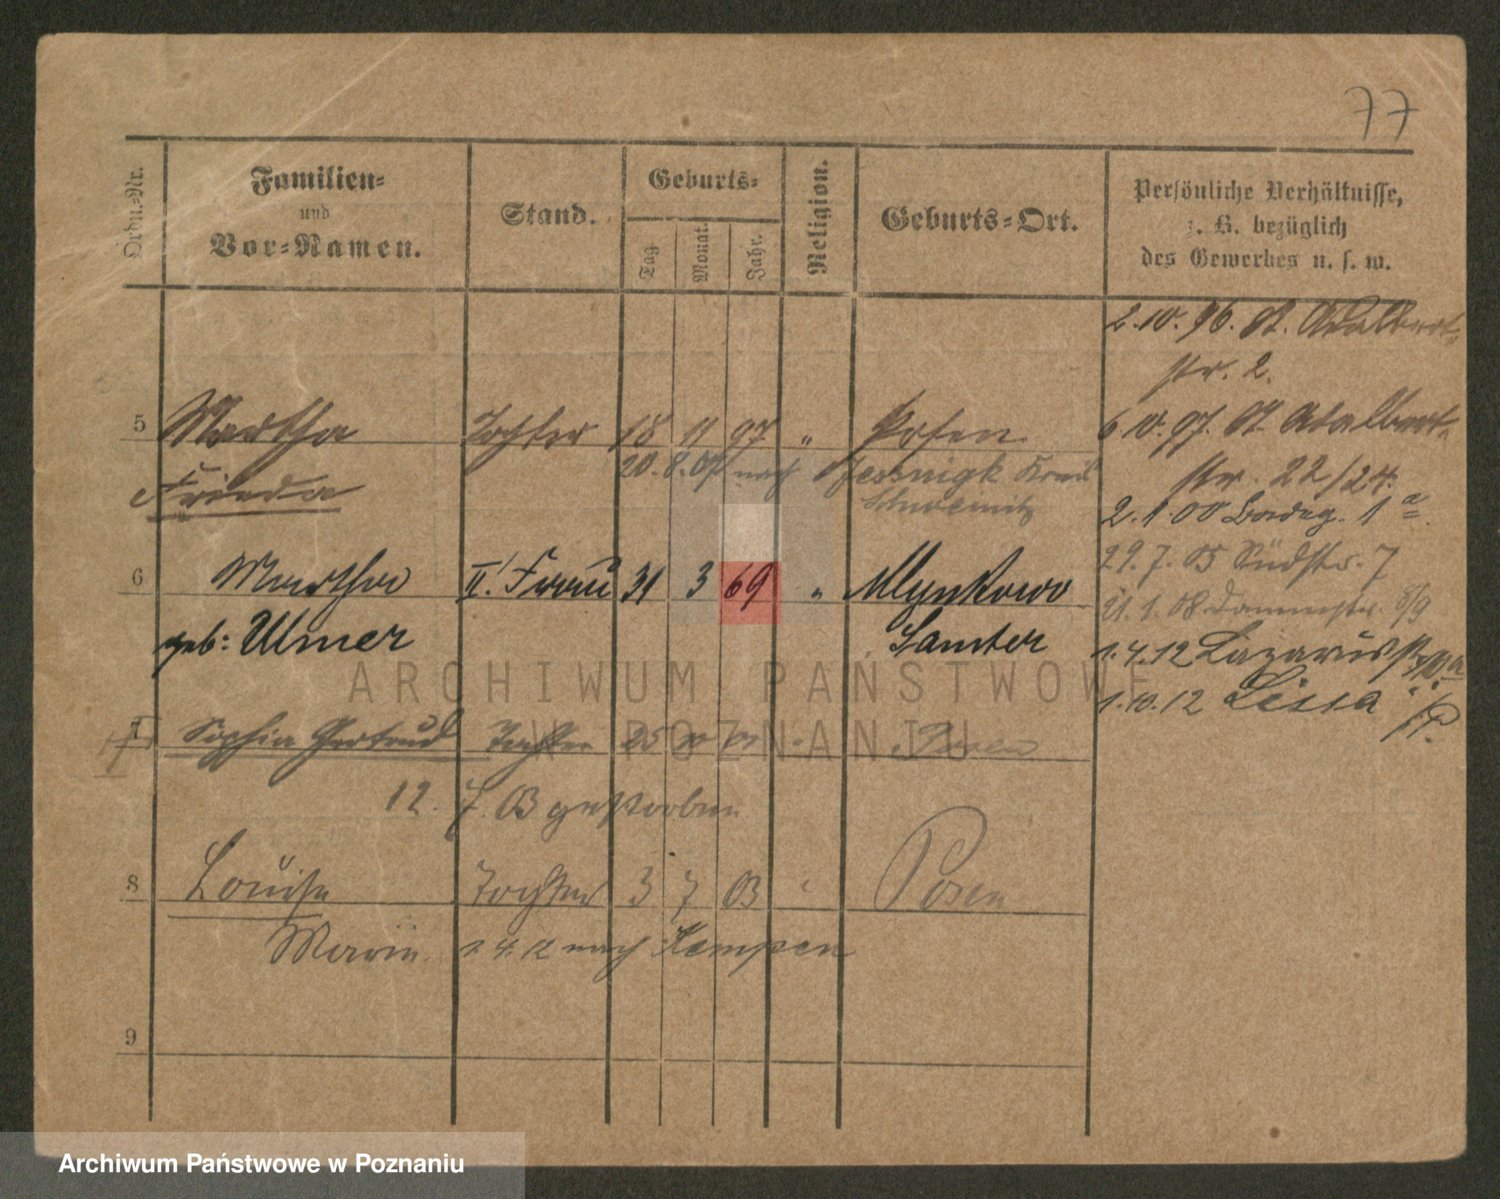 77
Ordn.-Nr.
Familien-
und
Vor-Namen.
Stand.
Geburts-
Tag
Monat.
Jahr.
Religion.
Geburts-Ort.
Persönliche Verhältnisse,
z. B. bezüglich
des Gewerbes u. s. w.
2.10.96. St. Adalbert-
str. 2.
5 Martha Tochter 18 11 97 " Posen
6 10. 97. St. Adalbert-
Frieda 20. 8. 07 nach Jessnigk Kreis
Schweinitz
str. 22/24.
2.1.00 1a
6 Martha II. Frau 31 3 69 " Mlynkowo
29.7.05 Südstr. 7
21.1.08 8/9
geb: Ulmer Samter
1.4.12 Lazarus
1.10.12 Lissa i/P.
7 Sophia Gertrud Tochter 25 Posen
12. 7. 03 gestorben
8 Louise Tochter 3 7 03 " Posen
Marie 1.4.12 nach Kempen
9
ARCHIWUM PAŃSTWOWE
W POZNANIU
Archiwum Państwowe w Poznaniu